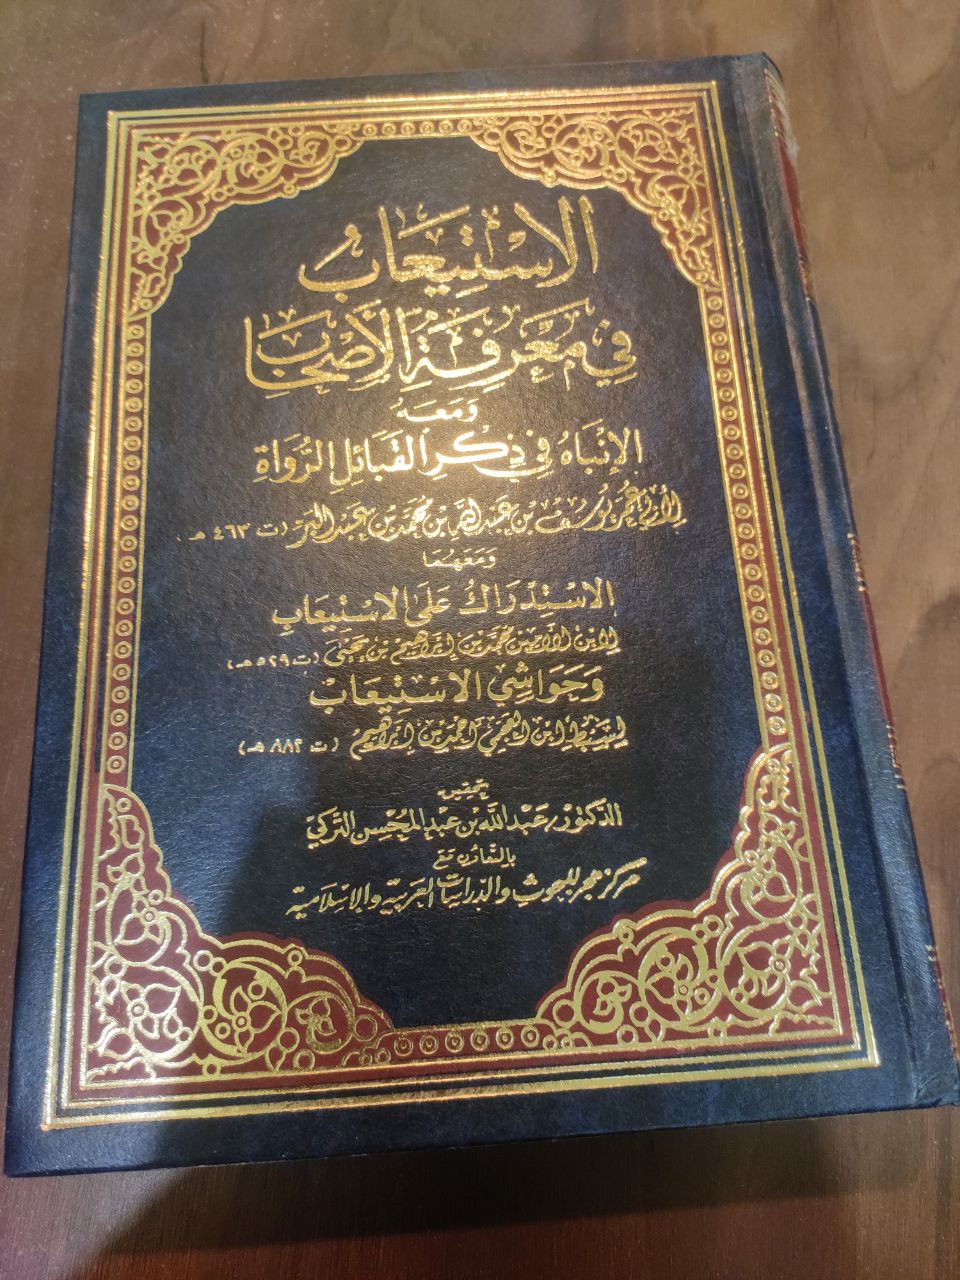 الاستيعاب
في معرفة الأصحاب
ومعه
الإنباه في ذكر القبائل الرواة
لأبي عمر يوسف بن عبد الله بن محمد بن عبد البر (ت ٤٦٣ هـ)
ومعهما
الاستدراك على الاستيعاب
لابن الأمين محمد بن إبراهيم بن يحيى (ت ٥٢٩ هـ)
وحواشي الاستيعاب
لسبط ابن العجمي أحمد بن إبراهيم (ت ٨٨٢ هـ)
تحقيق
الدكتور/ عبد الله بن عبد المحسن التركي
بالتعاون مع
مركز هجر للبحوث والدراسات العربية والإسلامية